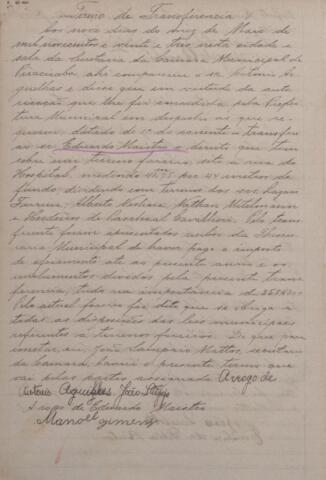 Termo de Transferencia
Aos nove dias do mez de Maio de
mil novecentos e vinte e tres nesta cidade e
sala da Secretaria da Camara Municipal de
Piracicaba, ahi compareceu o sr. Antonio A-
guilhas e disse que em virtude da auto
risação que lhe foi concedida pela Prefei
tura Municipal em despacho ao que re-
quereu, datado de 1º do corrente, transferia
ao sr. Eduardo Maistro o direito que tem
sobre um terreno foreiro, sito á rua do
Hospital, medindo 4m,75 por 44 metros de
fundo, dividindo com terrenos dos srs.
Ferreira, Alberto, Nathan Mitelmann
e Herdeiros de Cavalheri. Pelo trans
ferente foram apresentados recibos da Thesou
raria Municipal de haver pago o imposto
de aforamento até ao presente anno e os
emolumentos devidos pela presente trans
ferencia, tudo na importancia de
Pelo actual foreiro foi dito que se obriga a
todas as disposições das leis municipaes
referentes á terrenos foreiros. De que para
constar, eu, João Sampaio Mattos, secretario
da Camara, lavrei o presente termo que
vai pelas partes assignado. Arrogo de
Antonio Aguilhas João
A rogo de Eduardo Maistro
Manoel Gimenes